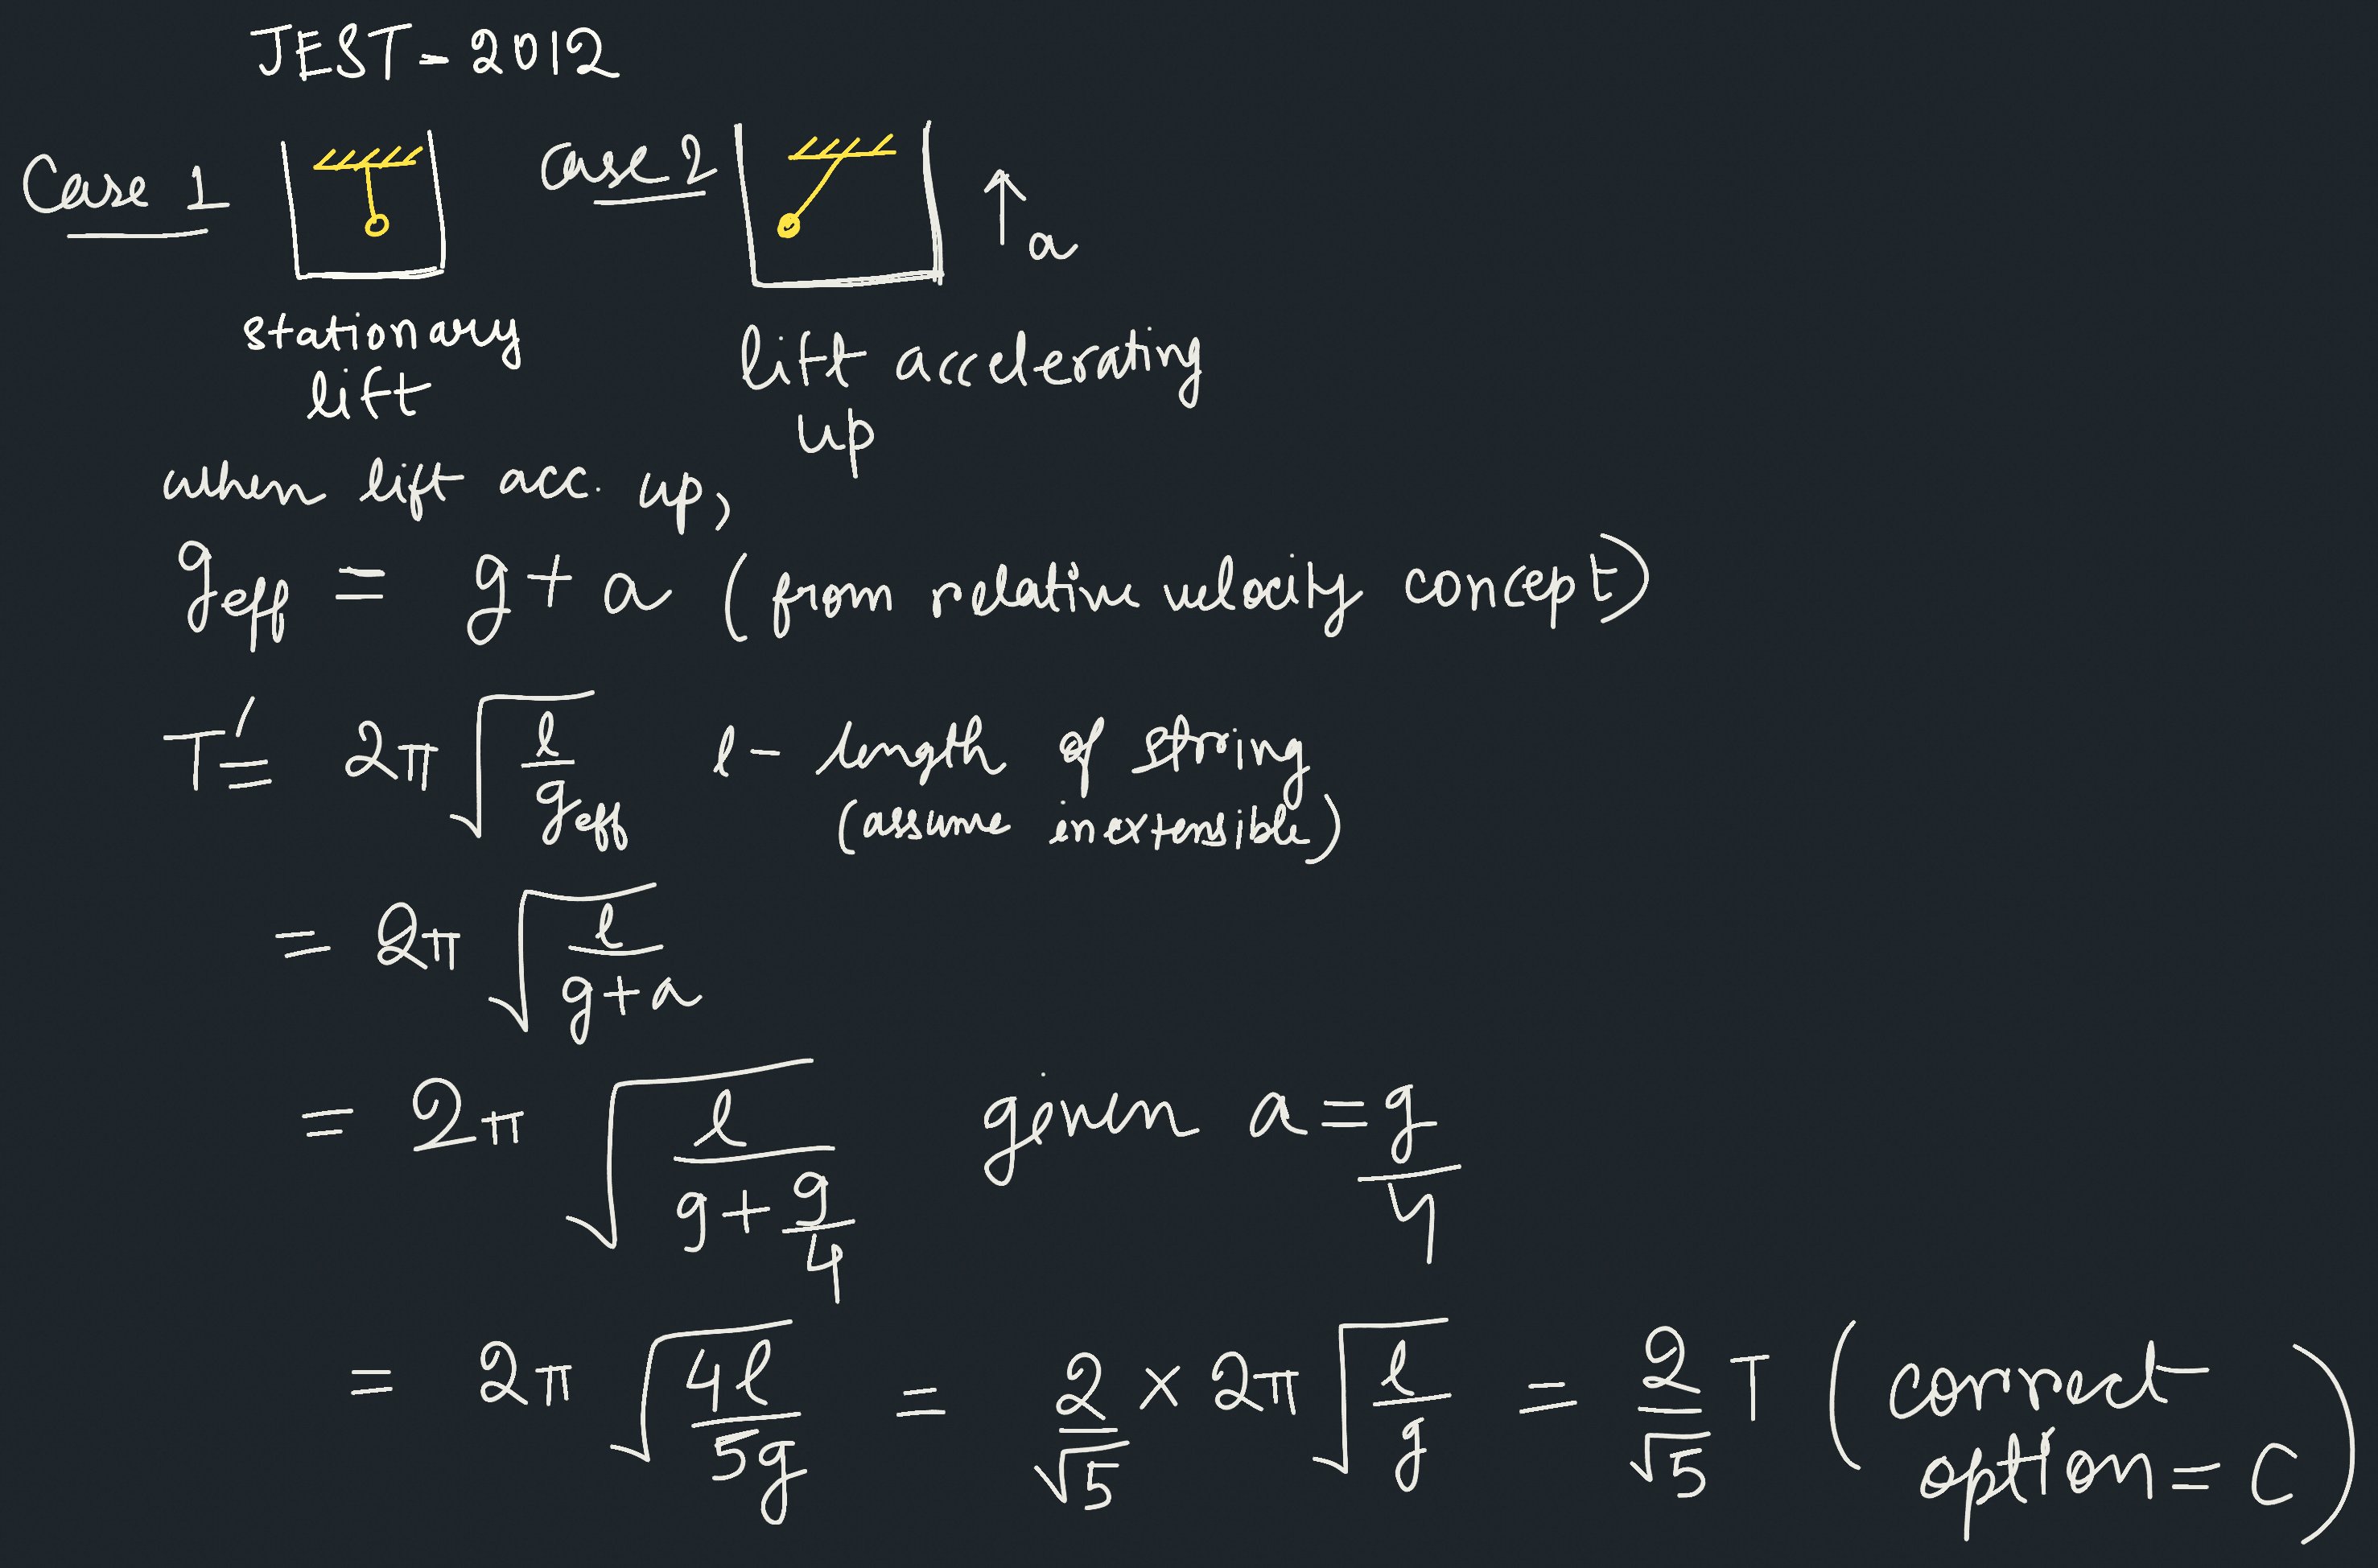 JEST-2012
Case 1
Case 2
a
stationary
lift
lift accelerating
up
when lift acc. up,
g_eff = g + a (from relative velocity concept)
T' = 2π √(l/g_eff) l - length of string
(assume inextensible)
= 2π √(l/(g+a))
= 2π √(l/(g+g/4)) given a = g/4
= 2π √(4l/5g) = 2/√5 × 2π √(l/g) = 2/√5 T (correct
option = C)